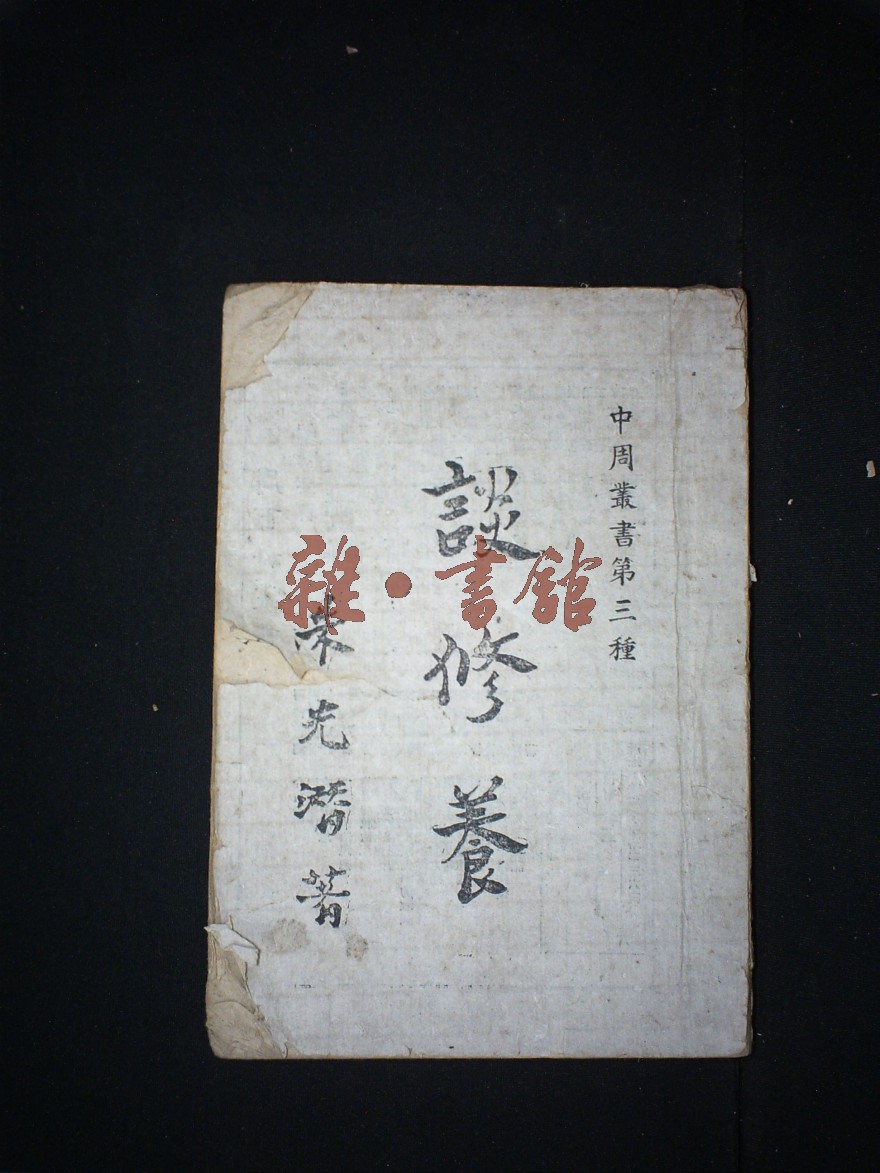 中周叢書第三種
談修養
朱光潛著
雜·書館